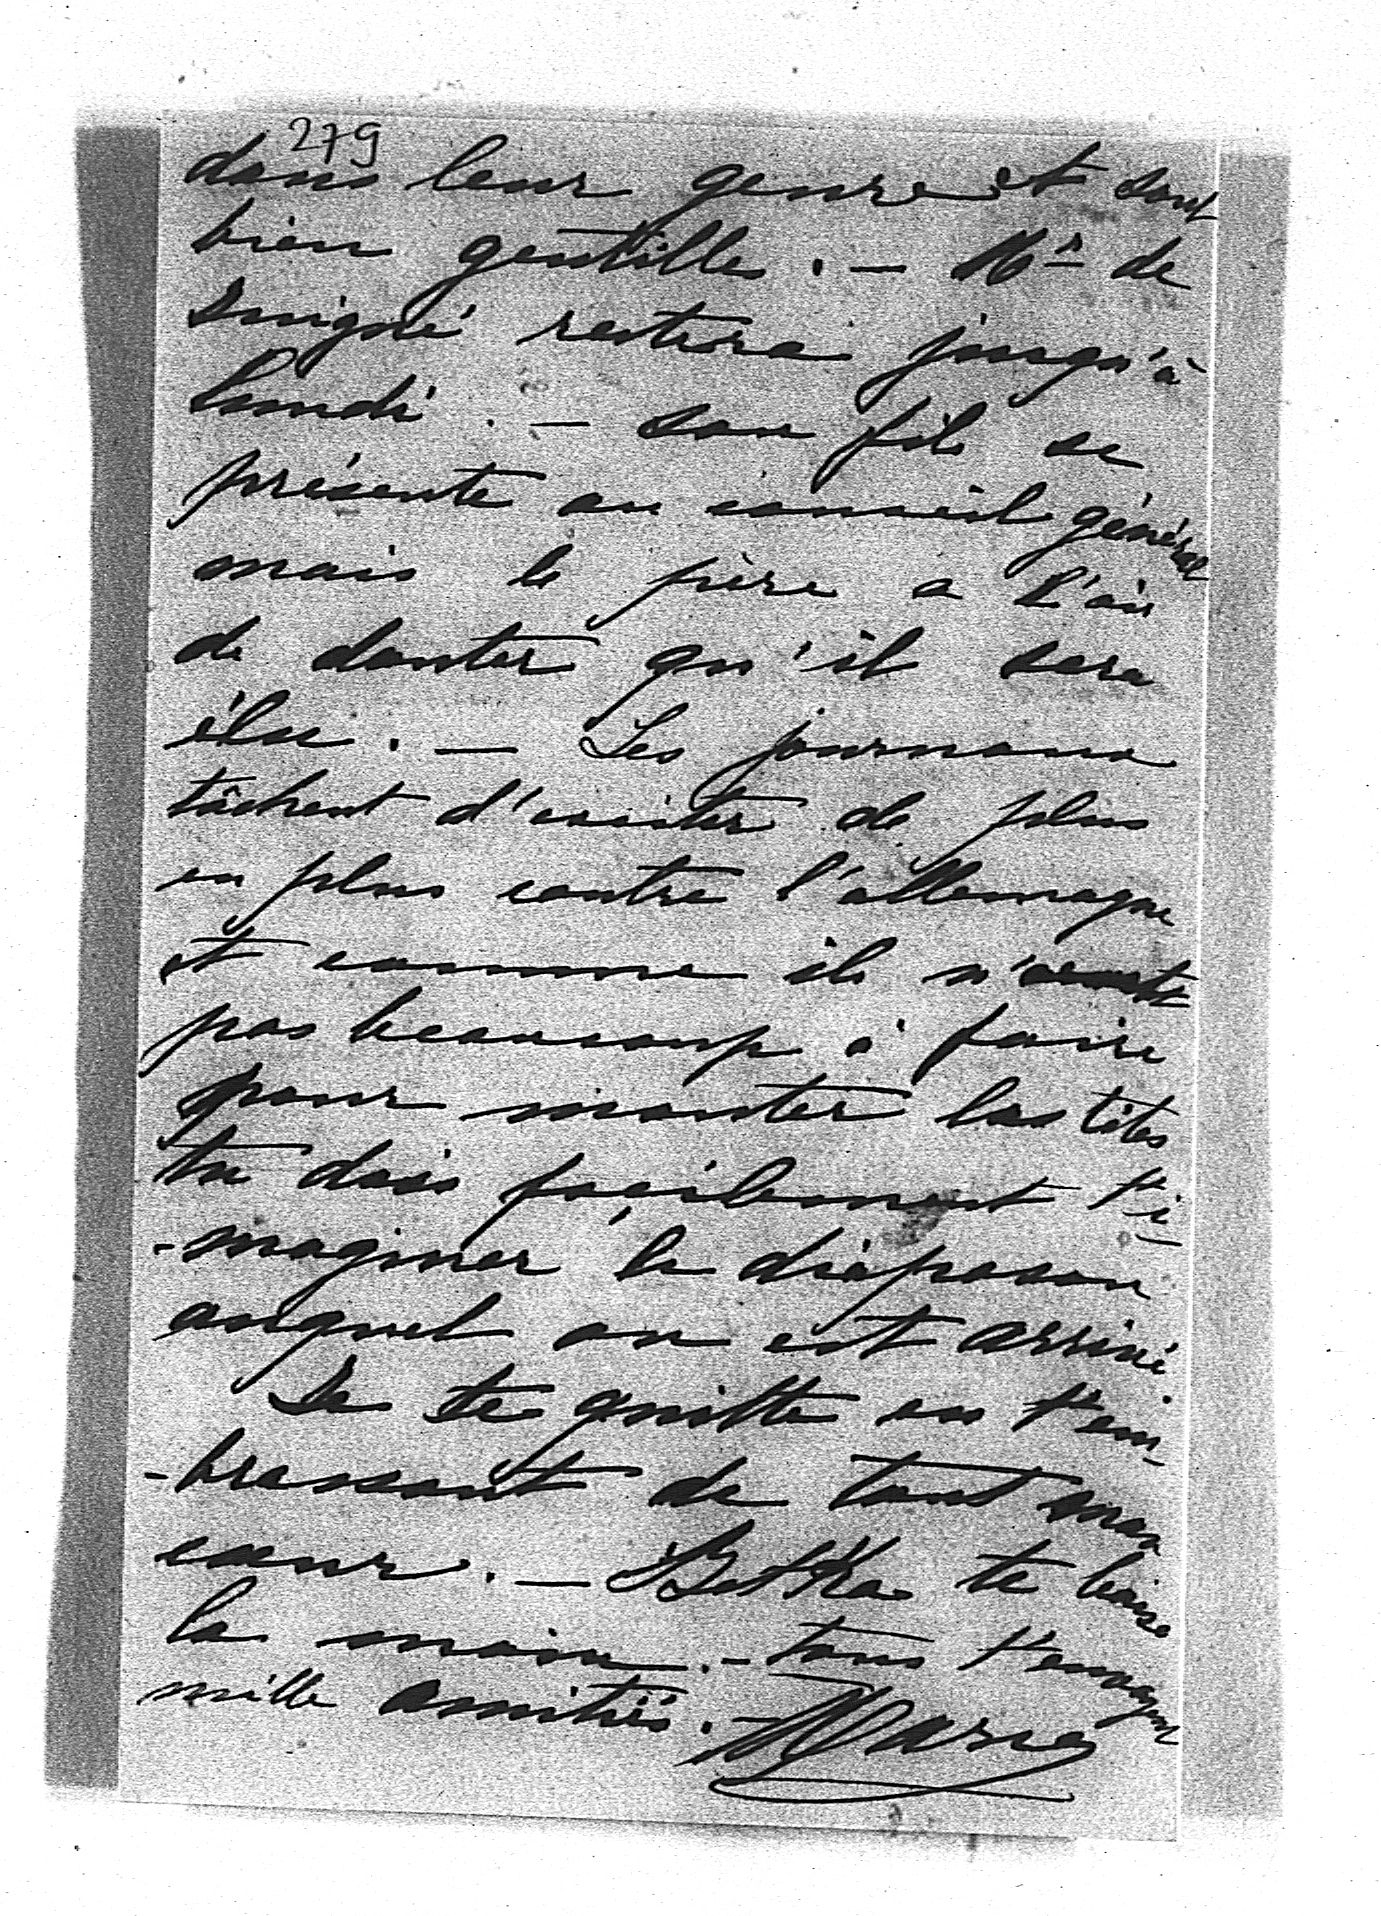 279
dans leur genre et sont
bien gentilles. — Mr de
restera jusqu'à
lundi. — son fils se
présente au conseil général
mais le père a l'air
de douter qu'il sera
élu. — Les journaux
tâchent d'exciter de plus
en plus contre l'allemagne
et comme ils n'
pas beaucoup à faire
pour monter les têtes
tu dois facilement t'i-
-maginer le diapason
auquel on est arrivé
Je te quitte en t'em-
-brassant de tout mon
cœur. — te baise
la main. — tous t'envoyent
mille amitiés. — Marie